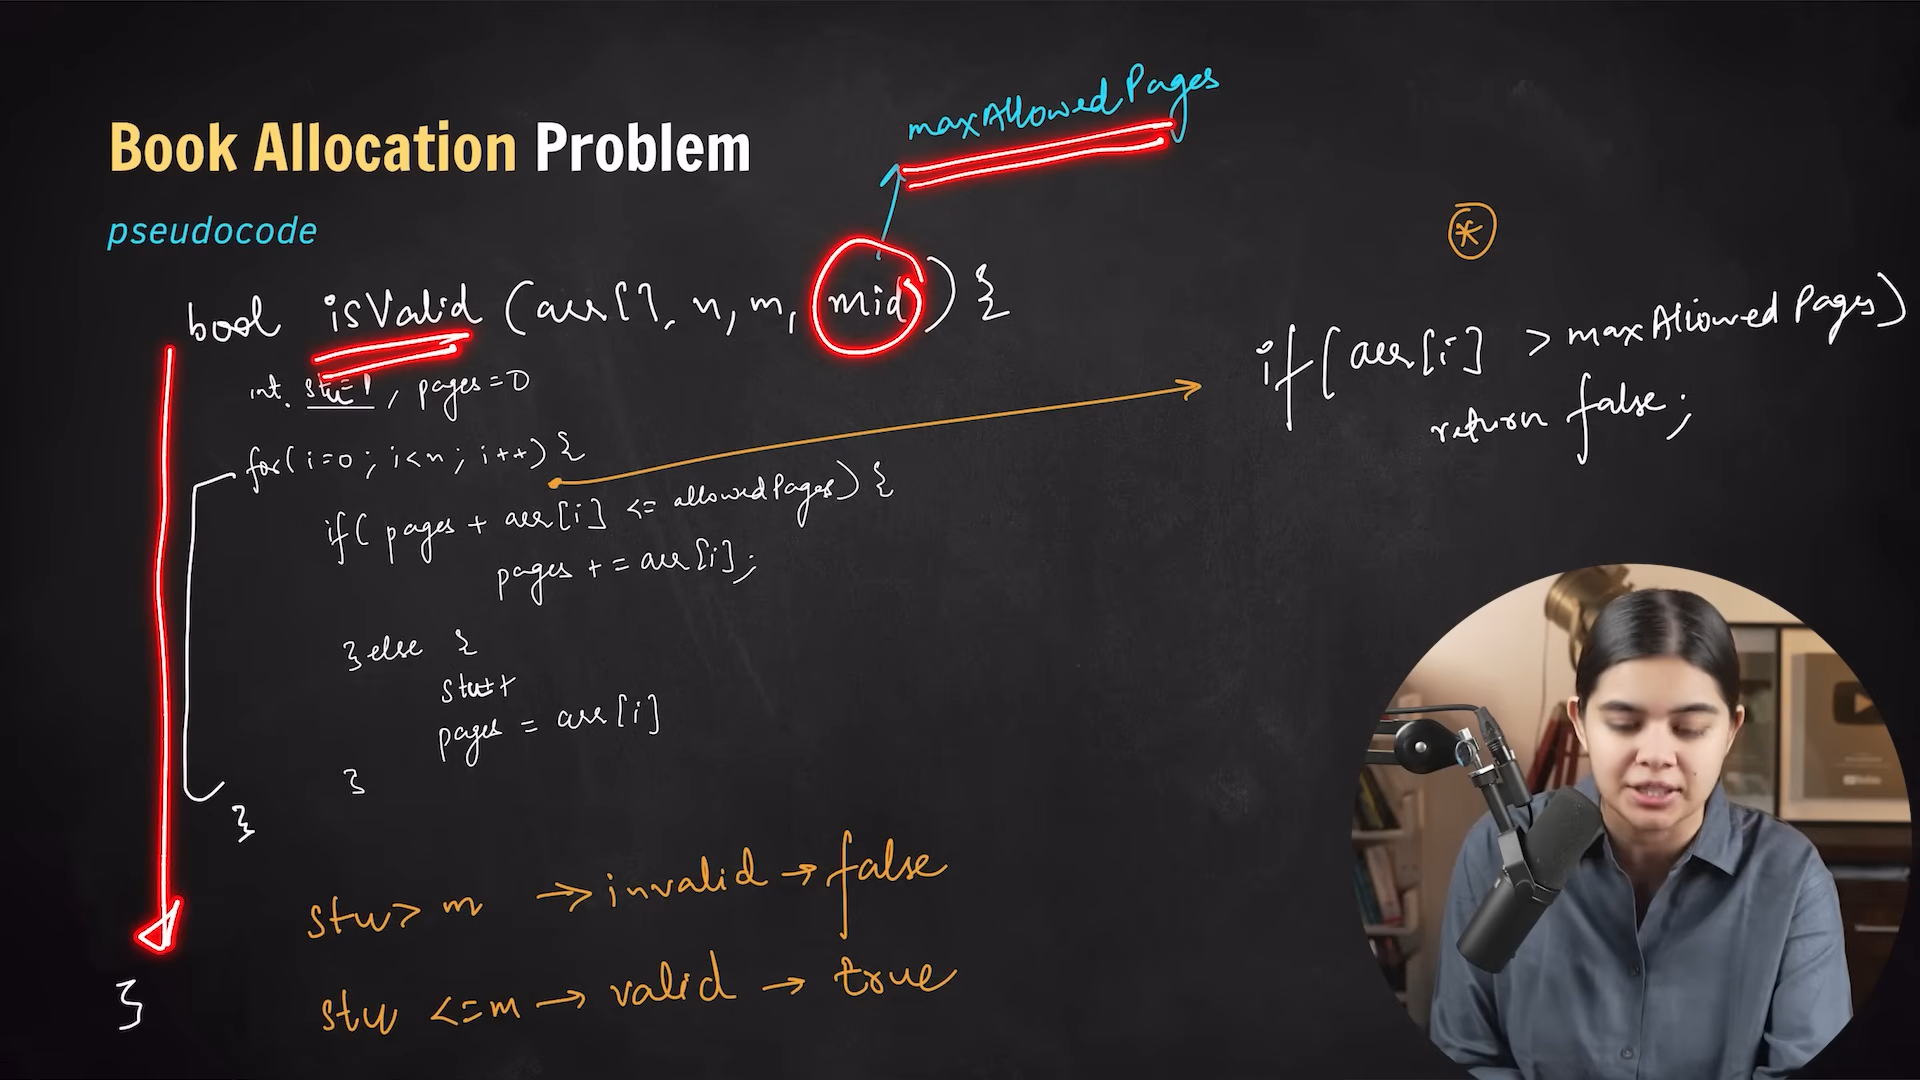 maxAllowedPages
Book Allocation Problem
pseudocode
bool isValid (arr[], n, m, mid) {
int stu=1, pages=0
for(i=0; i<n; i++) {
if( pages + arr[i] <= allowedPages) {
pages += arr[i];
} else {
stu++
pages = arr[i]
}
}
stu > m → invalid → false
stu <= m → valid → true
}
*
if(arr[i] > maxAllowedPages)
return false;